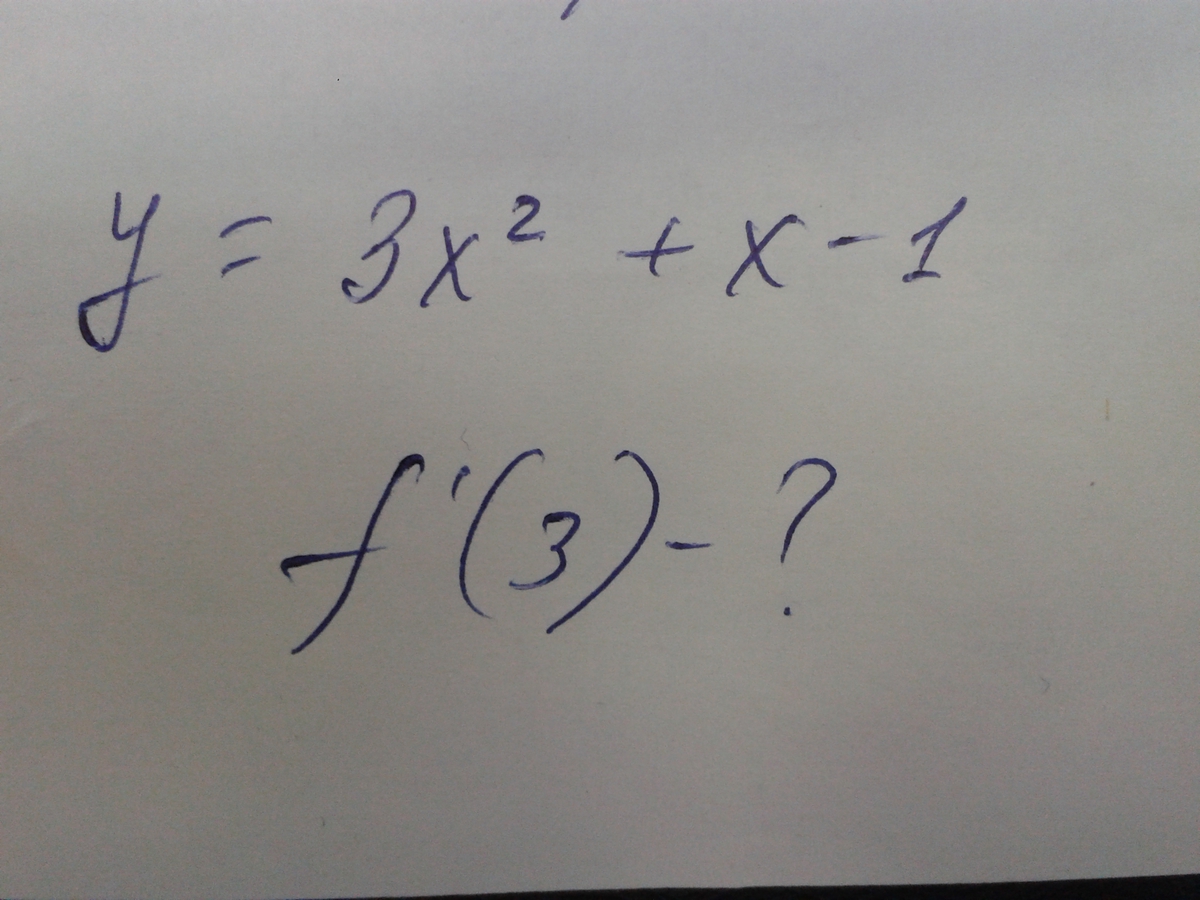 y = 3x² + x - 1
f'(3) - ?